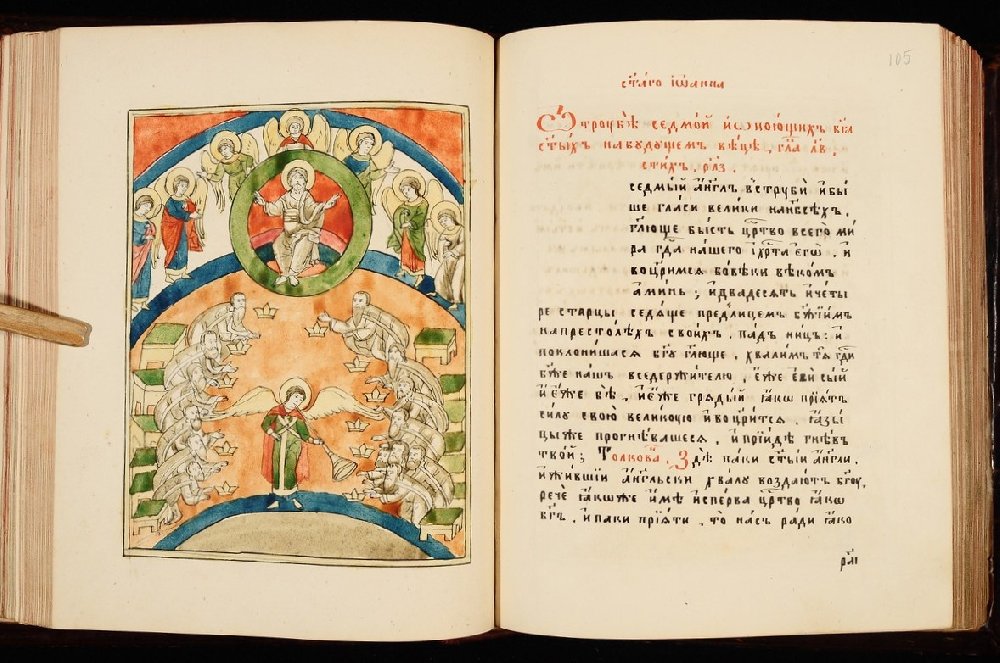 105
ст҃аго іѡанна
Ѿ трꙋбѣ седмой и҆ ѡ поющихъ бг҃а
ст҃ыхъ на бꙋдꙋщемъ вѣцѣ, гл҃а л҃в.
стихъ, рл҃з.
седмый а҆гг҃лъ вструби и҆ бы
ше гласи велики на нб҃сѣхъ,
гл҃юще бысть цр҃тво всего ми
ра гд҃а нашего і҆ хр҃та є҆гѡ, и҆
воцр҃имся во вѣки вѣкомъ
аминь; и҆ двадесять и҆ четы
ре старцы седѧще пред лицемъ бж҃їимъ
на престолѣхъ своихъ, падъ ницъ: и҆
поклонишася бг҃у гл҃юще, хвалимъ тѧ гд҃и
бж҃е нашъ вседержителю, є҆же є҆си сый
и҆ є҆же бѣ, и҆ є҆же грѧдый ꙗкѡ прїѧтъ
силꙋ свою великꙋю и҆ воцр҃ится, ꙗзы
цы же прогнѣвашеся, и҆ прїиде гнѣвъ
твой; Толкова. Здѣ паки ст҃ыи а҆гг҃ли,
и҆ жившїи а҆гг҃льски хвалꙋ воздаютъ бг҃ꙋ,
рече ꙗкѡже и҆мѣ и҆сперва цр҃тво ꙗкѡ
бг҃ъ, и҆ паки прїѧти, то насъ ради ꙗко